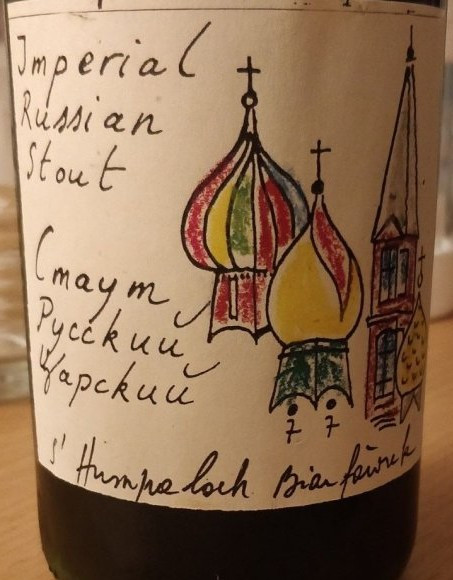 Imperial
Russian
Stout
Стаут
Русский
Царский
7 7
S' Humpaloch Biar fàwrek